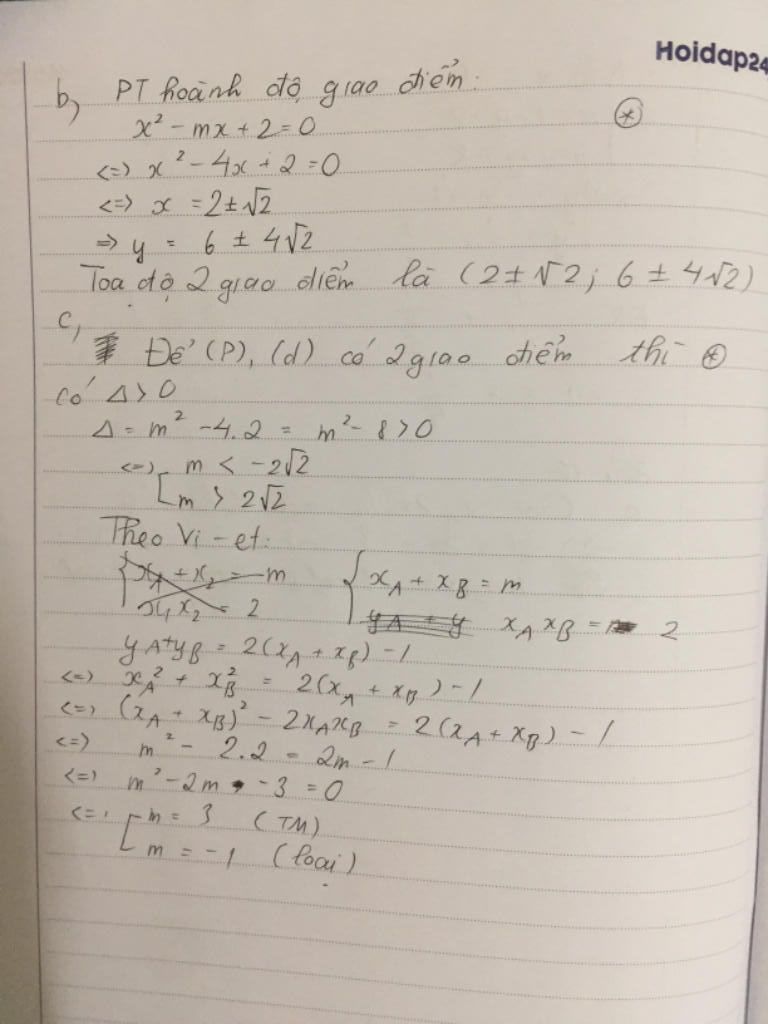 Hoidap24
b, PT hoành độ giao điểm:
x² - mx + 2 = 0 (*)
<=> x² - 4x + 2 = 0
<=> x = 2 ± √2
=> y = 6 ± 4√2
Toạ độ 2 giao điểm là (2 ± √2 ; 6 ± 4√2)
c,
Để (P), (d) có 2 giao điểm thì (*)
có Δ > 0
Δ = m² - 4.2 = m² - 8 > 0
<=> [ m < -2√2
[ m > 2√2
Theo Vi-et:
{ xA + x2 = m { xA + xB = m
x1 x2 = 2 yA + y xA xB = 2
yA + yB = 2(xA + xB) - 1
<=> xA² + xB² = 2(xA + xB) - 1
<=> (xA + xB)² - 2xAxB = 2(xA + xB) - 1
<=> m² - 2.2 = 2m - 1
<=> m² - 2m - 3 = 0
<=> [ m = 3 (TM)
[ m = -1 (loại)